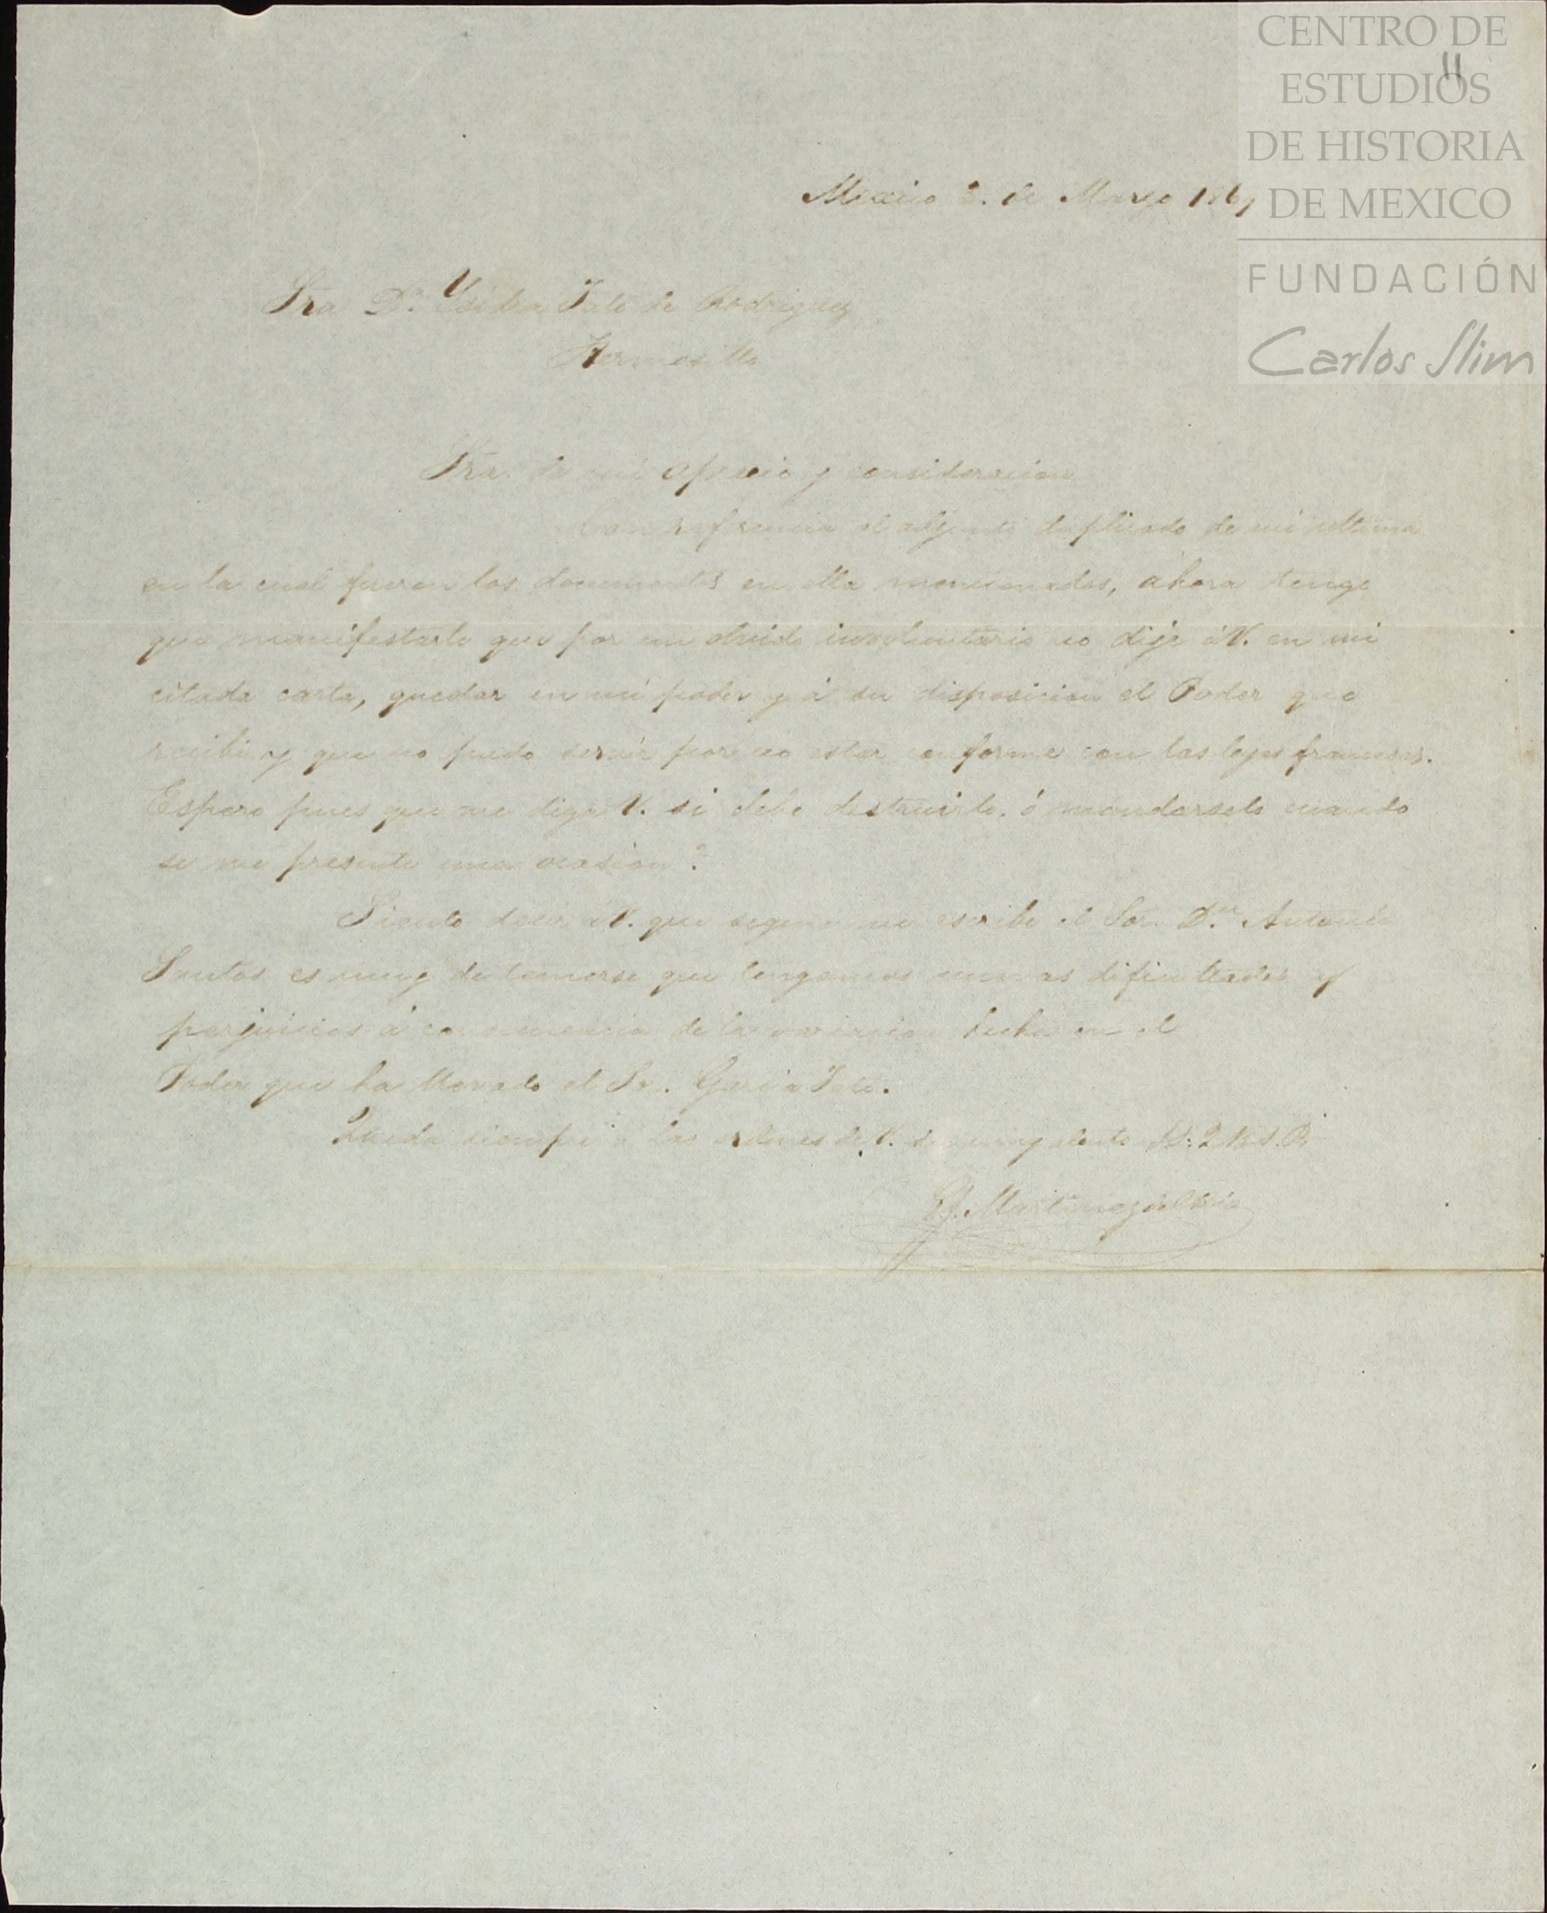 CENTRO DE
ESTUDIOS
DE HISTORIA
DE MEXICO
FUNDACIÓN
Carlos Slim
11
Mexico 2. de Marzo 1861
Sra Dª. Ysidra Tato de Rodriguez
Hermosillo
Sra. de mi aprecio y consideracion
Con referencia al adjunto duplicado de mi ultima
en la cual fueron los documentos en ella mencionados, ahora tengo
que manifestarle que por un olvido involuntario no dije á V. en mi
citada carta, quedar en mi poder y á su disposicion el Poder que
recibi y que no pudo servir por no estar conforme con las leyes francesas.
Espero pues que me diga V. si debo destruirlo, ó mandarselo cuando
se me presente una ocasion?
Siento decir á V. que segun me escribe el Sor. Dn. Antonio
Santos es muy de temerse que tengamos nuevas dificultades y
perjuicios á consecuencia de la variacion hecha en el
Poder que ha llevado el Sr. Garcia Tato.
Queda siempre a las ordenes de V. su muy atento S. S. Q. B. S. P.
Martinez del Rio